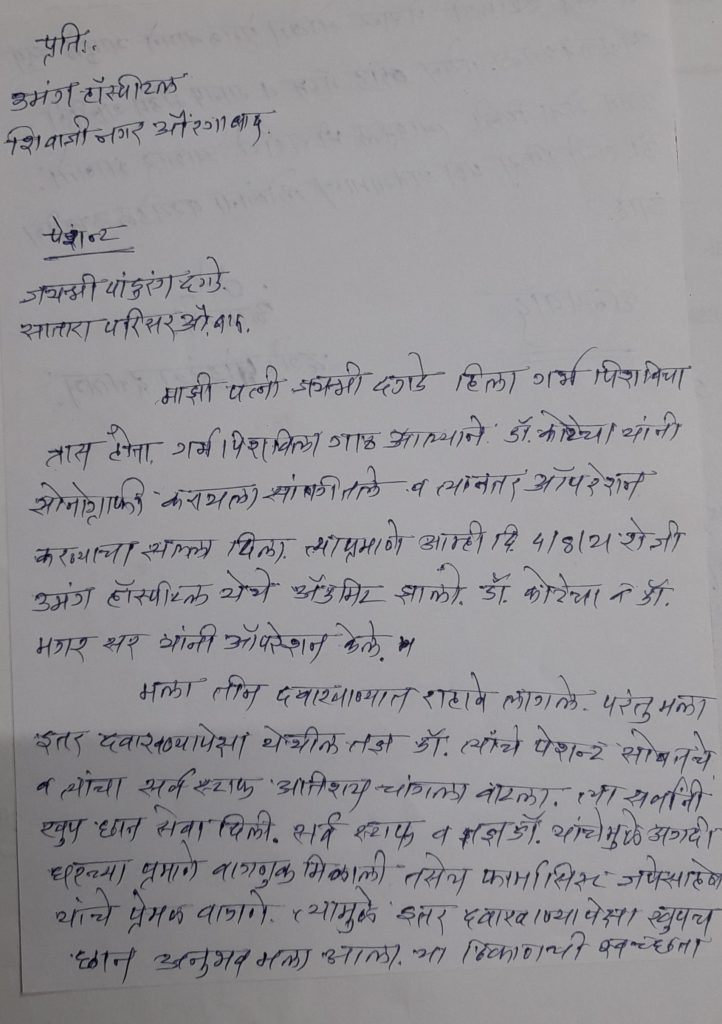 प्रति,
उमंग हॉस्पीटल
शिवाजी नगर औरंगाबाद.
पेशंन्ट
जयश्री पांडुरंग दगडे.
सातारा परिसर औ.बाद.
माझी पत्नी जयश्री दगडे हिला गर्भ पिशविचा
त्रास होता. गर्भ पिशविला गाठ आल्याने. डॉ. कोटेचा यांनी
सोनोग्राफी करायला सांगीतले व त्यानंतर ऑपरेशन
करण्याचा सल्ला दिला. त्याप्रमाणे आम्ही दि 4/8/21 रोजी
उमंग हॉस्पीटल येथे अ‍ॅडमिट झालो. डॉ. कोटेचा व डॉ.
मगर सर यांनी ऑपरेशन केले.
मला तीन दवाखाण्यात राहावे लागले. परंतु मला
इतर दवाखण्यापेक्षा येथील तज्ञ डॉ. त्यांचे पेशन्ट सोबतचे
व त्यांचा सर्व स्टाफ अतिशय चांगला वाटला. त्या सर्वांनी
खुप छान सेवा दिली. सर्व स्टाफ व तज्ञ डॉ. यांचेमुळे अगदी
घरच्या प्रमाणे वागणुक मिळाली तसेच फार्मासिस्ट
यांचे प्रेमळ वागणे. त्यामुळे इतर दवाखाण्यापेक्षा खुपच
छान अनुभव मला आला. या ठिकाणची स्वच्छता